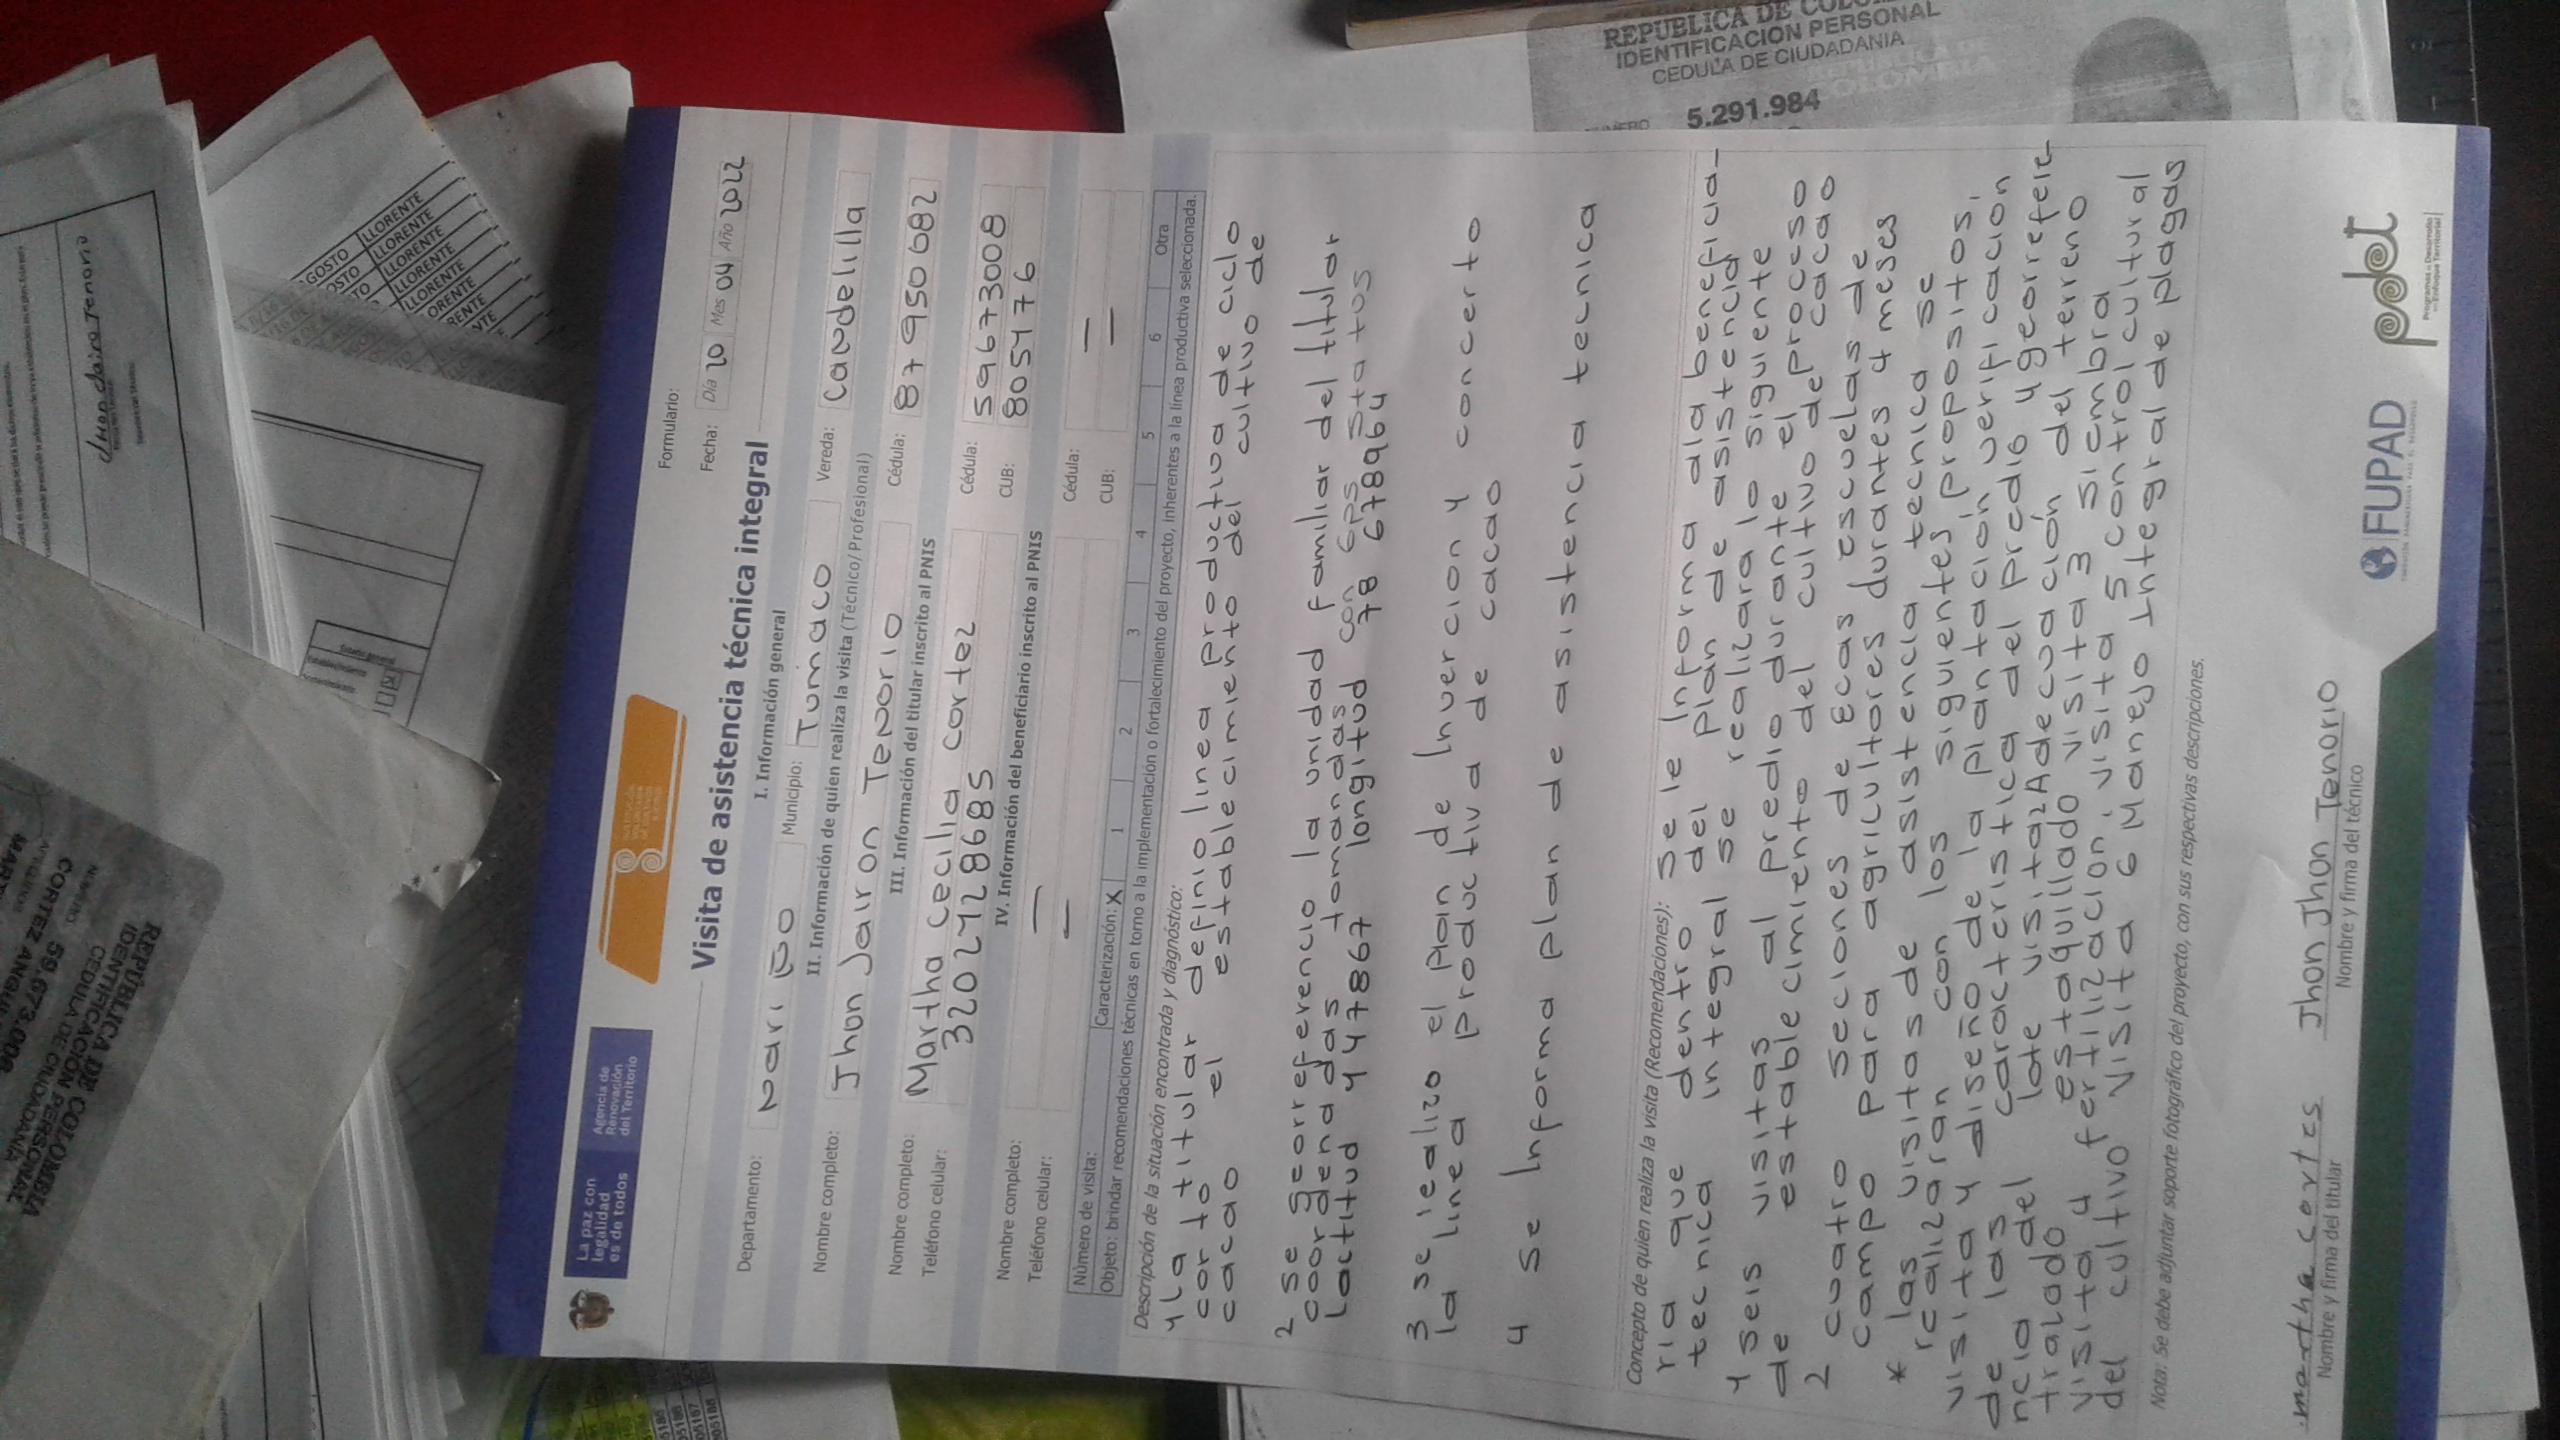 La paz con
legalidad
es de todos
Agencia de
Renovación
del Territorio
Formulario:
Visita de asistencia técnica integral
Fecha: Día 20 Mes 04 Año 2022
I. Información general
Departamento: Nariño Municipio: Tumaco Vereda: Candelilla
II. Información de quien realiza la visita (Técnico/Profesional)
Nombre completo: Jhon Jairon Tenorio Cédula: 87950682
III. Información del titular inscrito al PNIS
Nombre completo: Martha Cecilia Cortez Cédula: 59673008
Teléfono celular: 3202428685 CUB: 805476
IV. Información del beneficiario inscrito al PNIS
Nombre completo: — Cédula: —
Teléfono celular: — CUB: —
Número de visita: Caracterización: X 1 2 3 4 5 6 Otra
Objeto: brindar recomendaciones técnicas en torno a la implementación o fortalecimiento del proyecto, inherentes a la línea productiva seleccionada.
Descripción de la situación encontrada y diagnóstico:
1 La titular definio linea productiva de ciclo
corto el establecimiento del cultivo de
cacao
2 se georreferencio la unidad familiar del titular
coordenadas tomandas con GPS Status
Lactitud 1 47867 longitud 78 6789964
3 se realizo el plan de Invercion y concerto
la linea productiva de cacao
4 se Informa plan de asistencia tecnica
Concepto de quien realiza la visita (Recomendaciones): se le Informa ala beneficia-
ria que dentro del plan de asistencia
tecnica integral se realizara lo siguiente
1 seis visitas al predio durante el proceso
de establecimiento del cultivo de cacao
2 cuatro seciones de Ecas escuelas de
campo para agricultores durantes 4 meses
* las visitas de asistencia tecnica se
realizaran con los siguientes propositos,
visita 1 diseño de la plantación verificacion
de las caracteristica del predio y georrefere-
ncia del lote visita 2 Adecuación del terreno
tralado estaquillado visita 3 siembra
visita 4 fertilización, visita 5 control cultural
del cultivo visita 6 Manejo Integral de plagas
Nota: Se debe adjuntar soporte fotográfico del proyecto, con sus respectivas descripciones.
martha cortes
Nombre y firma del titular
Jhon Jhon Tenorio
Nombre y firma del técnico
FUPAD
pdet
Programas de Desarrollo
con Enfoque Territorial
REPUBLICA DE COLOMBIA
IDENTIFICACION PERSONAL
CEDULA DE CIUDADANIA
NUMERO 5.291.984
REPÚBLICA DE COLOMBIA
IDENTIFICACIÓN PERSONAL
CÉDULA DE CIUDADANÍA
NÚMERO 59.673.008
Jhon Jairo Tenorio
LLORENTE
LLORENTE
LLORENTE
LLORENTE
LLORENTE